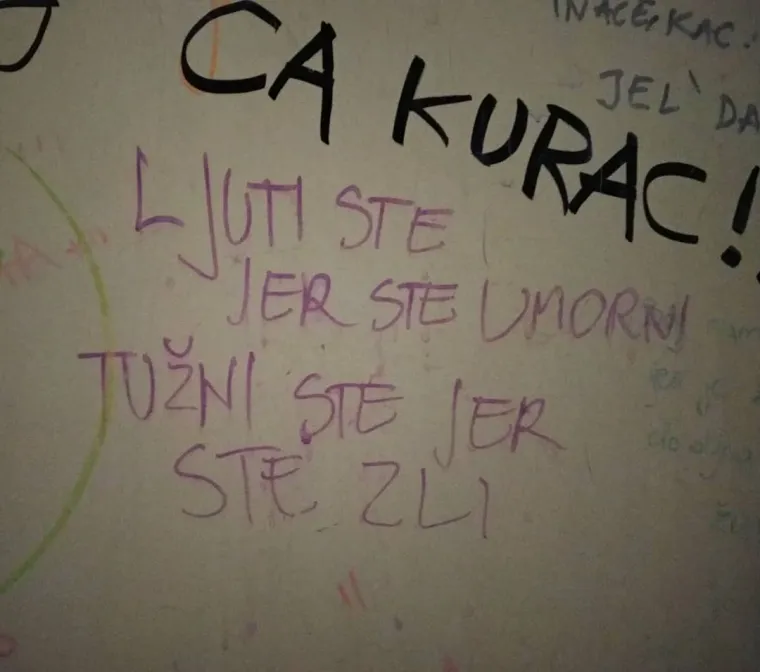 CA KURAC!
JEL' DA
LJUTI STE
JER STE UMORNI
TUŽNI STE JER
STE ZLI